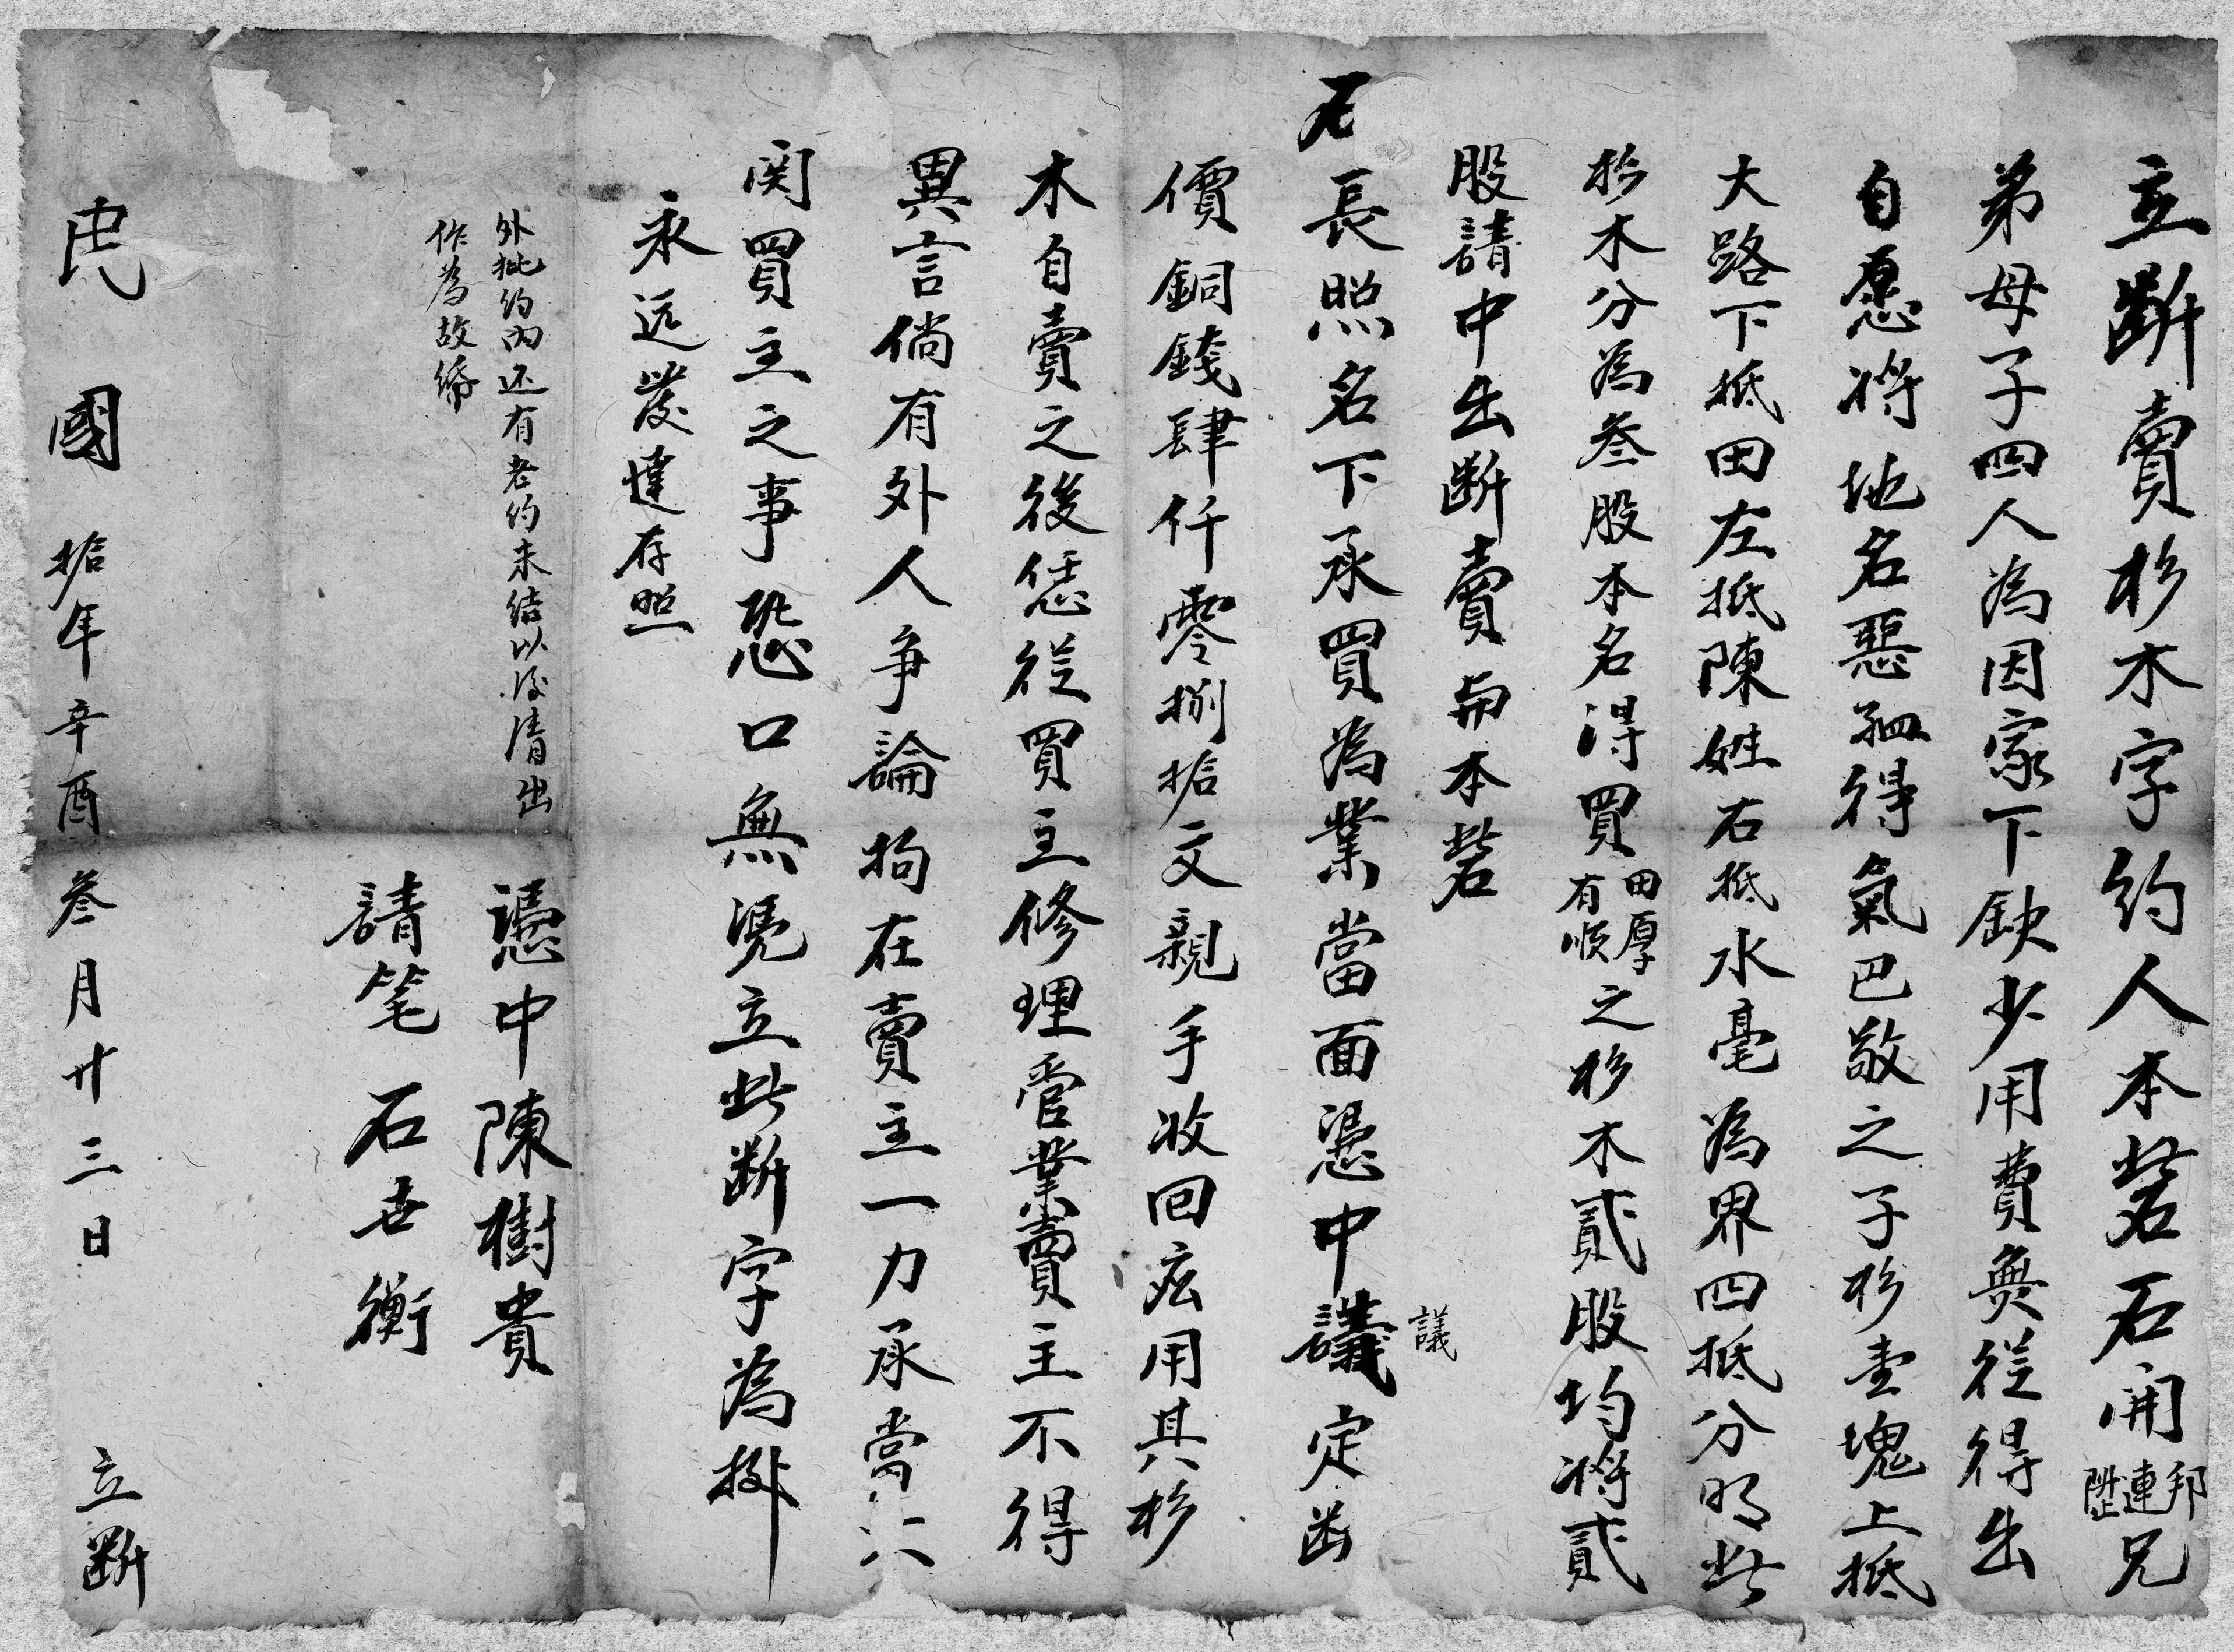 立断賣杉木字約人本砦石開邦連陞兄
弟母子四人為因家下缺少用費無從得出
自愿將地名惡泗得氣巴敬之子杉壹塊上抵
大路下抵田左抵陳姓右抵水毫為界四抵分明此
杉木分為叁股本名得買田厚有順之杉木貳股均將貳
股請中出断賣與本砦
石長照名下承買為業當面憑中議定断
議
價銅錢肆仟零捌拾文親手收回应用其杉
木自賣之後恁從買主修理管業賣主不得
異言倘有外人爭論拘在賣主一力承當不
関買主之事恐口無凭立此断字為據
永远發達存照
外批約內还有老約未結以後清出
作為故紙
憑中陳樹貴
請笔石世衡
民國拾年辛酉叁月廿三日立断